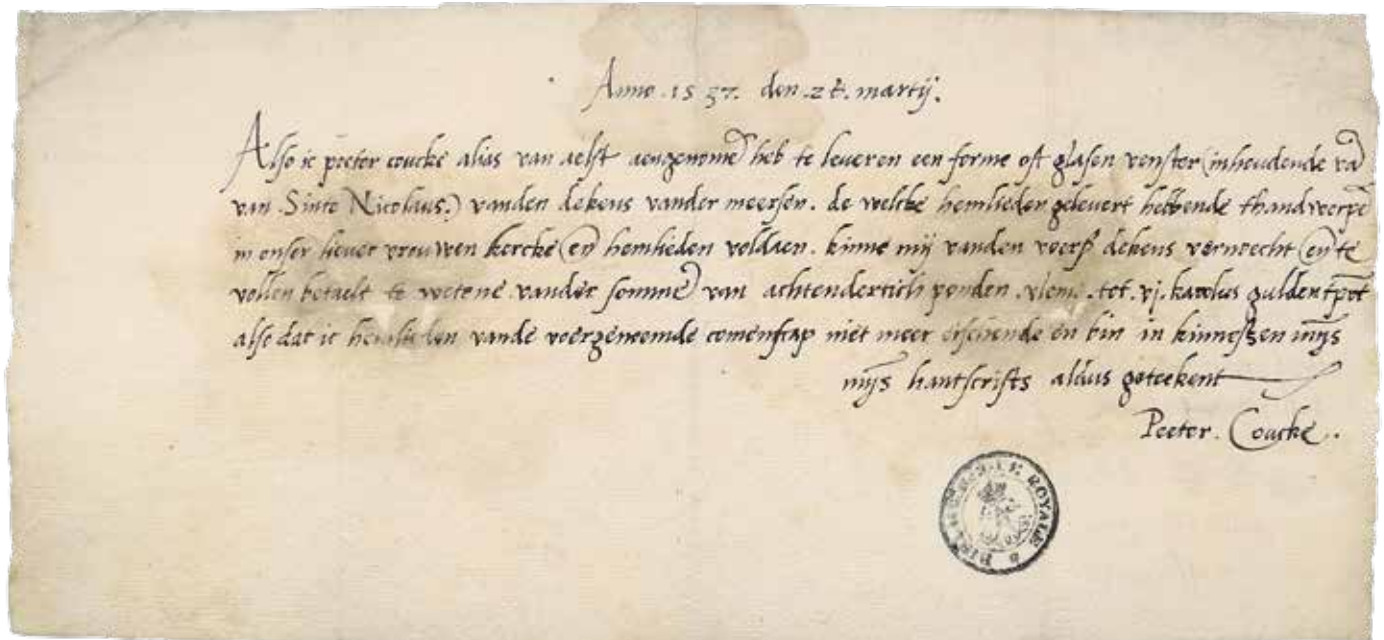 Anno .1537. den .28. martij.
Also ic peeter coucke alias van aelst aengenomē heb te leueren een forme oft glasen venster (inhoudende vā
van Sinte Nicolaus.) vanden dekens vander meersen. de welcke hemlieden geleuert hebbende thandwerpē
in onser lieuer vrouwen kercke en̄ hemlieden voldaen. kinne mij vanden voers̄ dekens vernoecht en̄ te
vollen betaelt te wetene vander sommē van achtendertich ponden .vlems. tot .vj. karolus gulden tpōt
also dat ic hemlieden vandē voergenoemde comenscap niet meer eischende en bin in kinnessen mijs
mijs hantscrifts aldus geteekent
Peeter. Coucke..
ROYALE